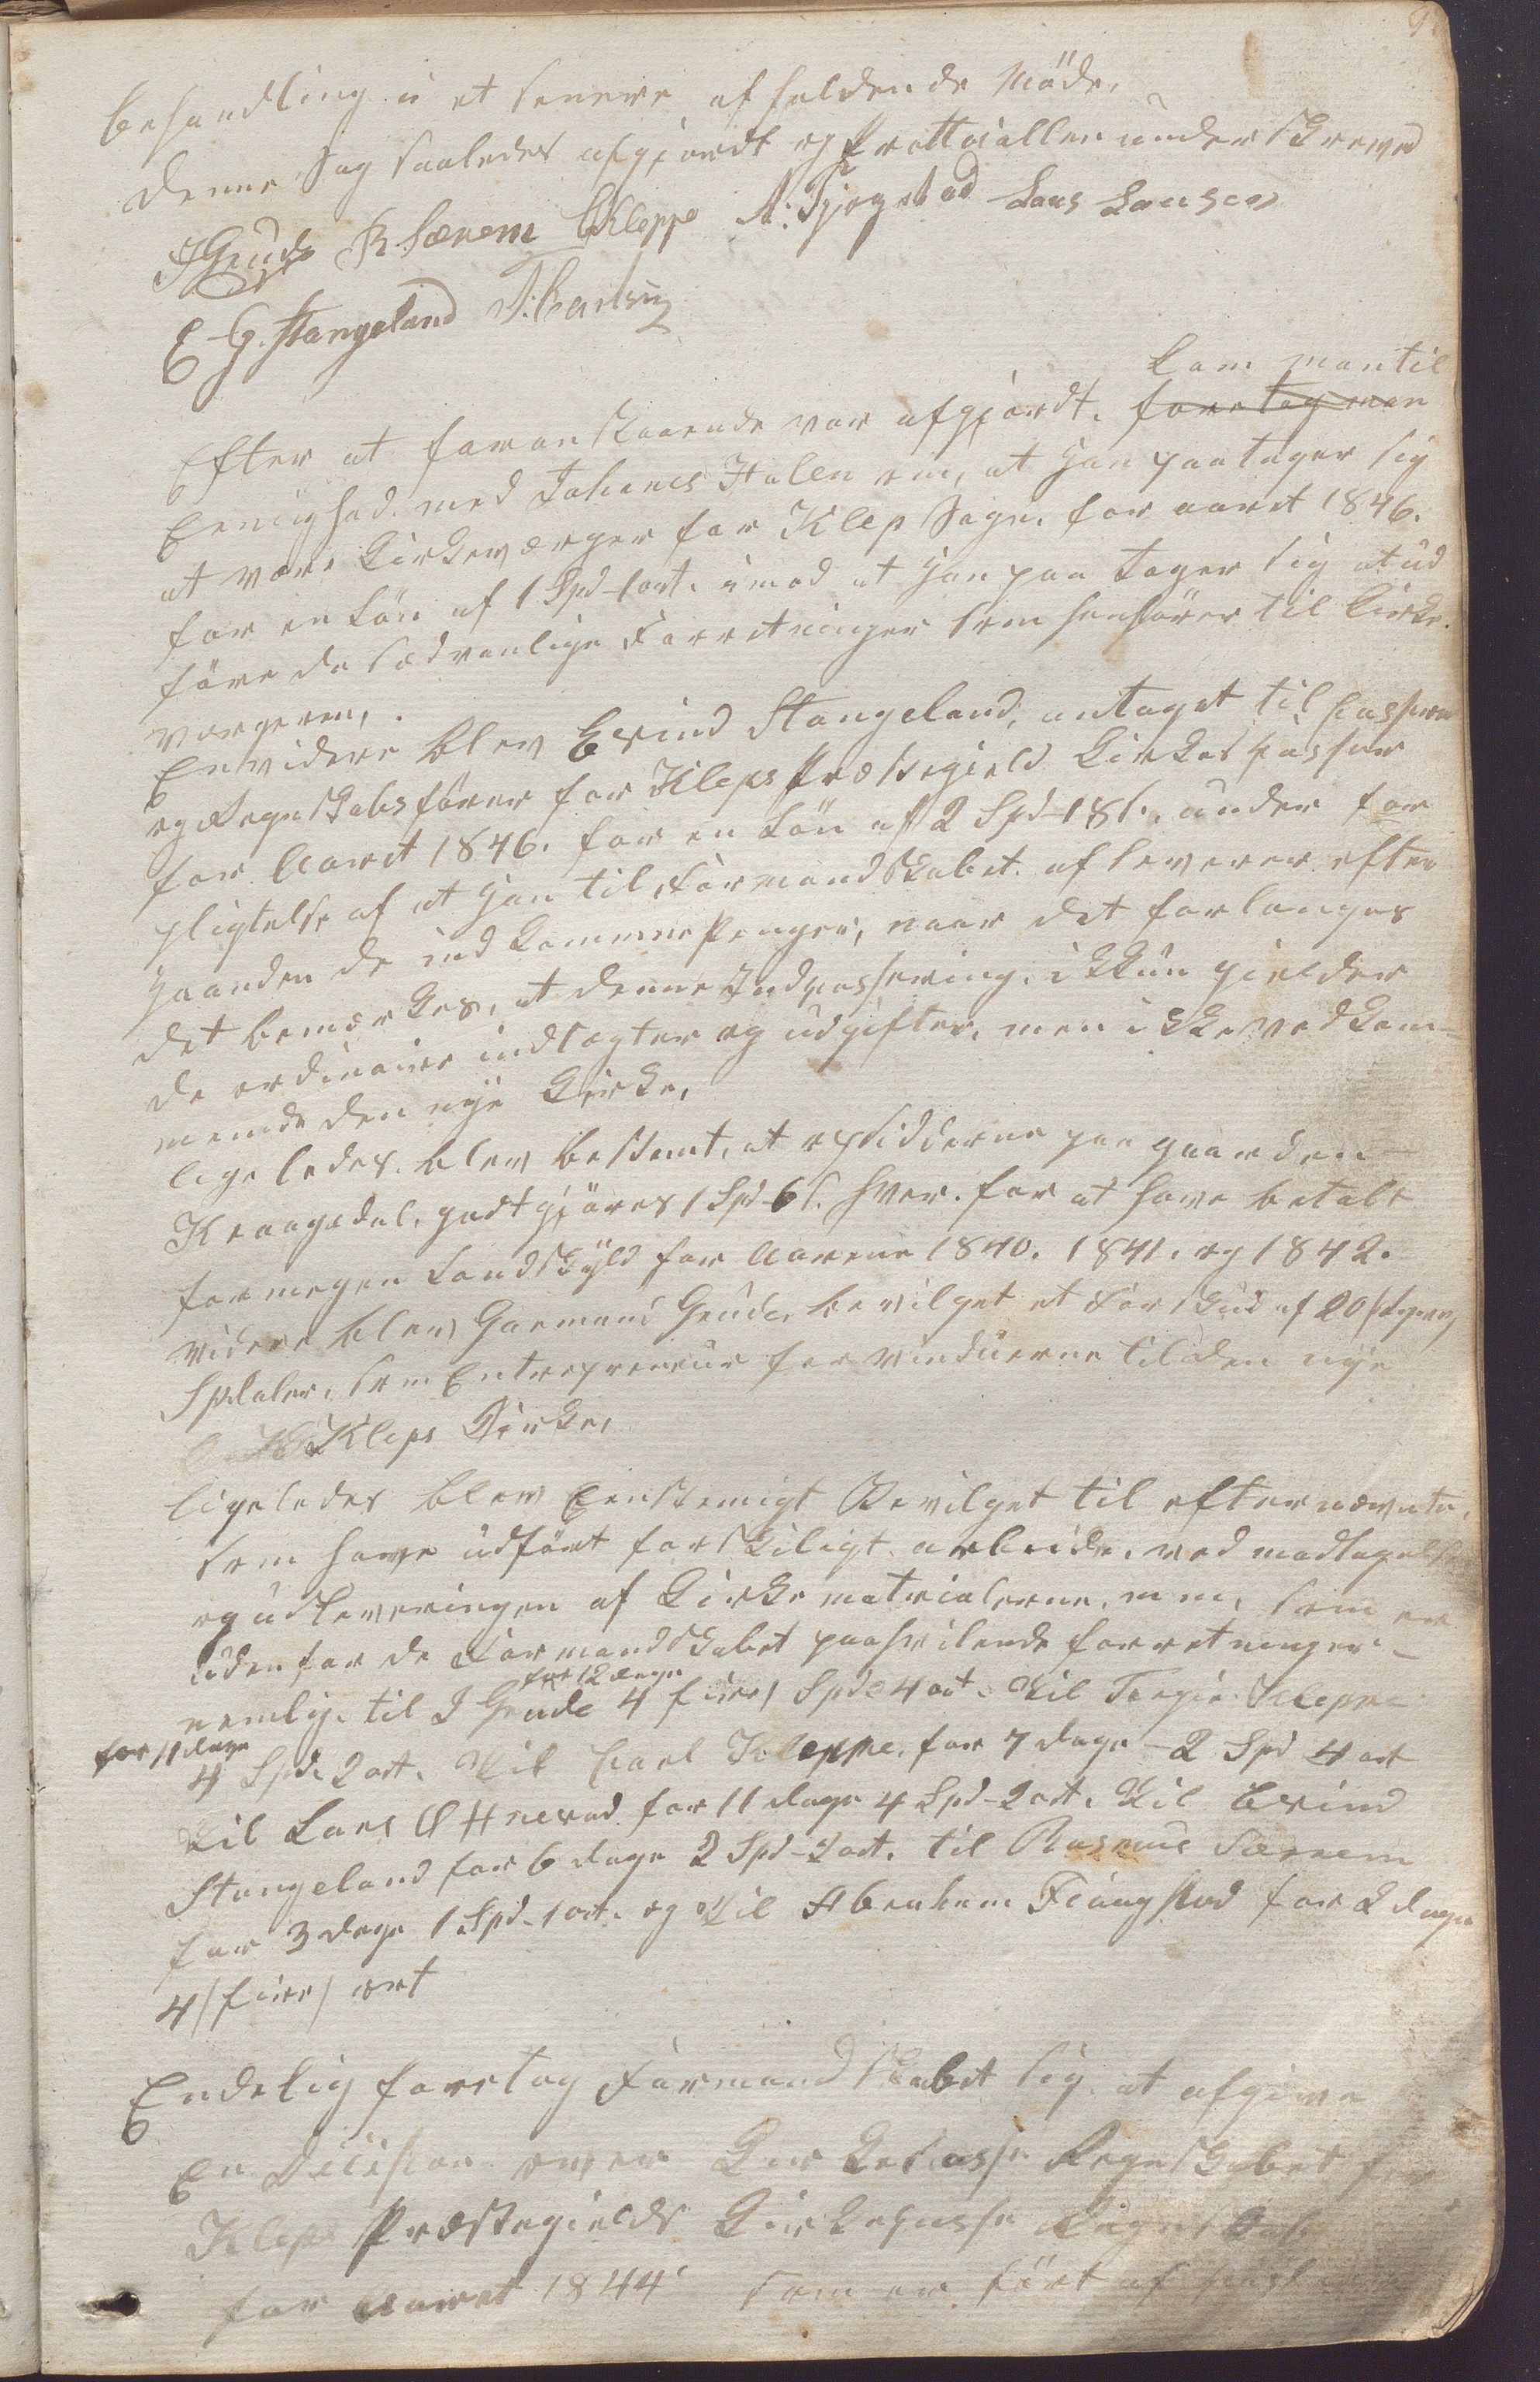 behandling i et senere afholdende Möde,
denne Sag saaledes afgjordt og Prottocallen underskreved
R Særem CKleppe A: Tjøgstad Lars Larsen
E G. Stangeland
Efter at foranstaaende var afgjordt. foretog man kom man til
Eenighed. med Johanes Halen om, at han paatager sig
at være Kirkeværger for Klep Sogn, for aaret 1846.
for en Lön af 1 Spd 1 ort. imod at han paa tager sig at ud
före de sædvanlige Forretninger som henhörer til Kirke
værgeren,.
Envidere blev Evind Stangeland, antaget til Casserer
og Regnskabsförer for Kleps Præstegield Kirkes Casser
for Aaret 1846. for en Lön af 2 Spd 18 s., under for
pligtelse af at han til Formandskabet. afleverer efter
haanden de indkomne Penger, naar det forlanges
det bemærkes, at denne Indcassering. ikkun gielder
de ordinaire indtægter og udgifter, men ikke vedkom-
mende den nye Kirke,
ligeledes. blev bestemt, at opsidderne paa gaarden
Kraagedal, godtgjöres 1 Spd 6 s. hver. for at have betalt
formegen Landskyld for Aarene 1840. 1841. og 1842.
videre blev Gaemund Grude, bevilget et Forskud af 20 /tyve/
Spdaler, som Entrepreneur for vinduerne til den nye
Kleps Kirke,
ligeledes blev Eenstemigt Bevilget til efternævnte,
som have udfört forskiligt arbeide, ved modtagelse
og udleveringen af Kirkematrialerne, m m, som er
udenfor de Formandskabet paahvilende forretninger –
nemlig. til I Grude for 12 dage 4 /fire/ Spd 4 ort. til Torgier Kleppe
for 11 dage 4 Spd. 2 ort. til Carl Kleppe, for 7 dage – 2 Spd 4 ort
til Lars Ø Hnevad for 11 dage 4 Spd – 2 ort. til Evind
Stangeland for 6 dage 2 Spd – 2 ort. til Rasmus Særem
for 3 dage 1 Spd – 1 ort. og til Abraham Tiaugstad for 2 dage
4 /fire/ ort
Endelig foretog Formandskabet sig. at afgive
En Decision over Kirkekasse Regnskabet for
Kleps Præstegields Kirkekasse
for Aaret 1844 som er fört af